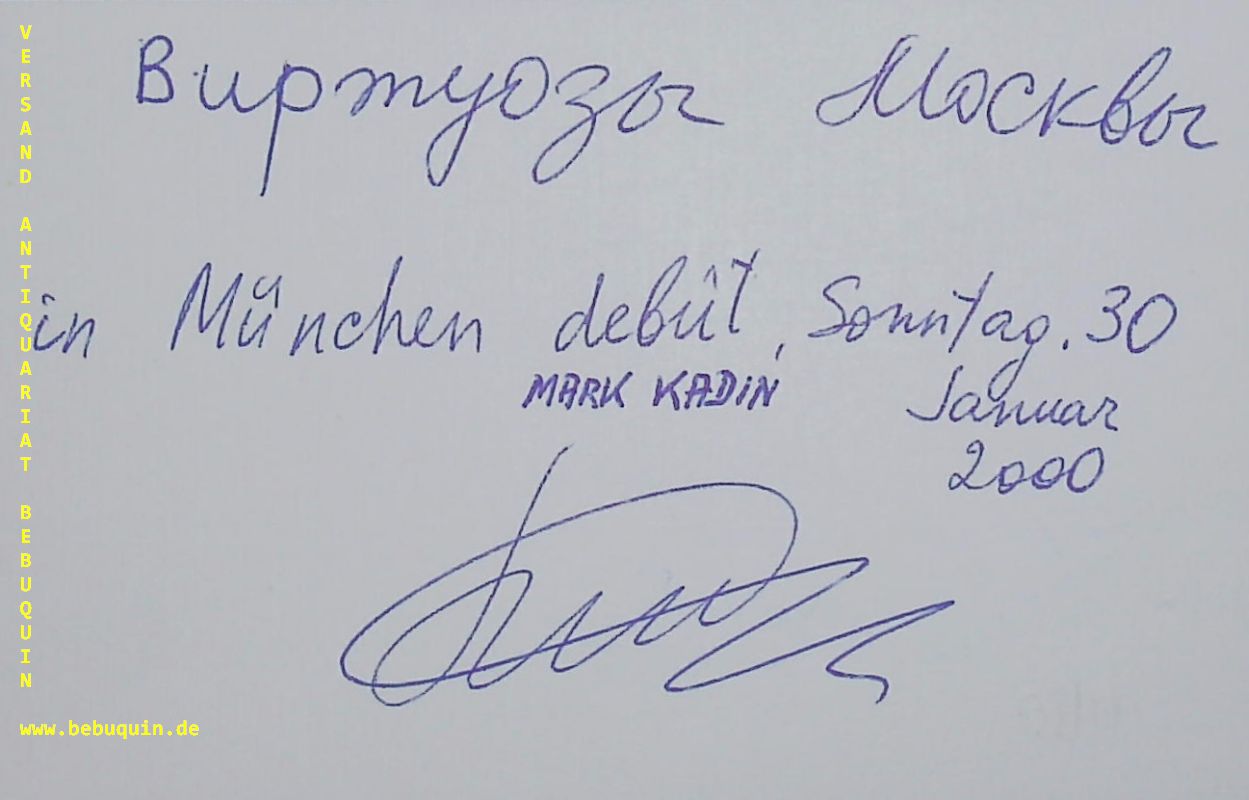 Виртуозы Москвы
in München debüt, Sonntag. 30
Januar
2000
MARK KADIN
VERSAND ANTIQUARIAT BEBUQUIN
www.bebuquin.de